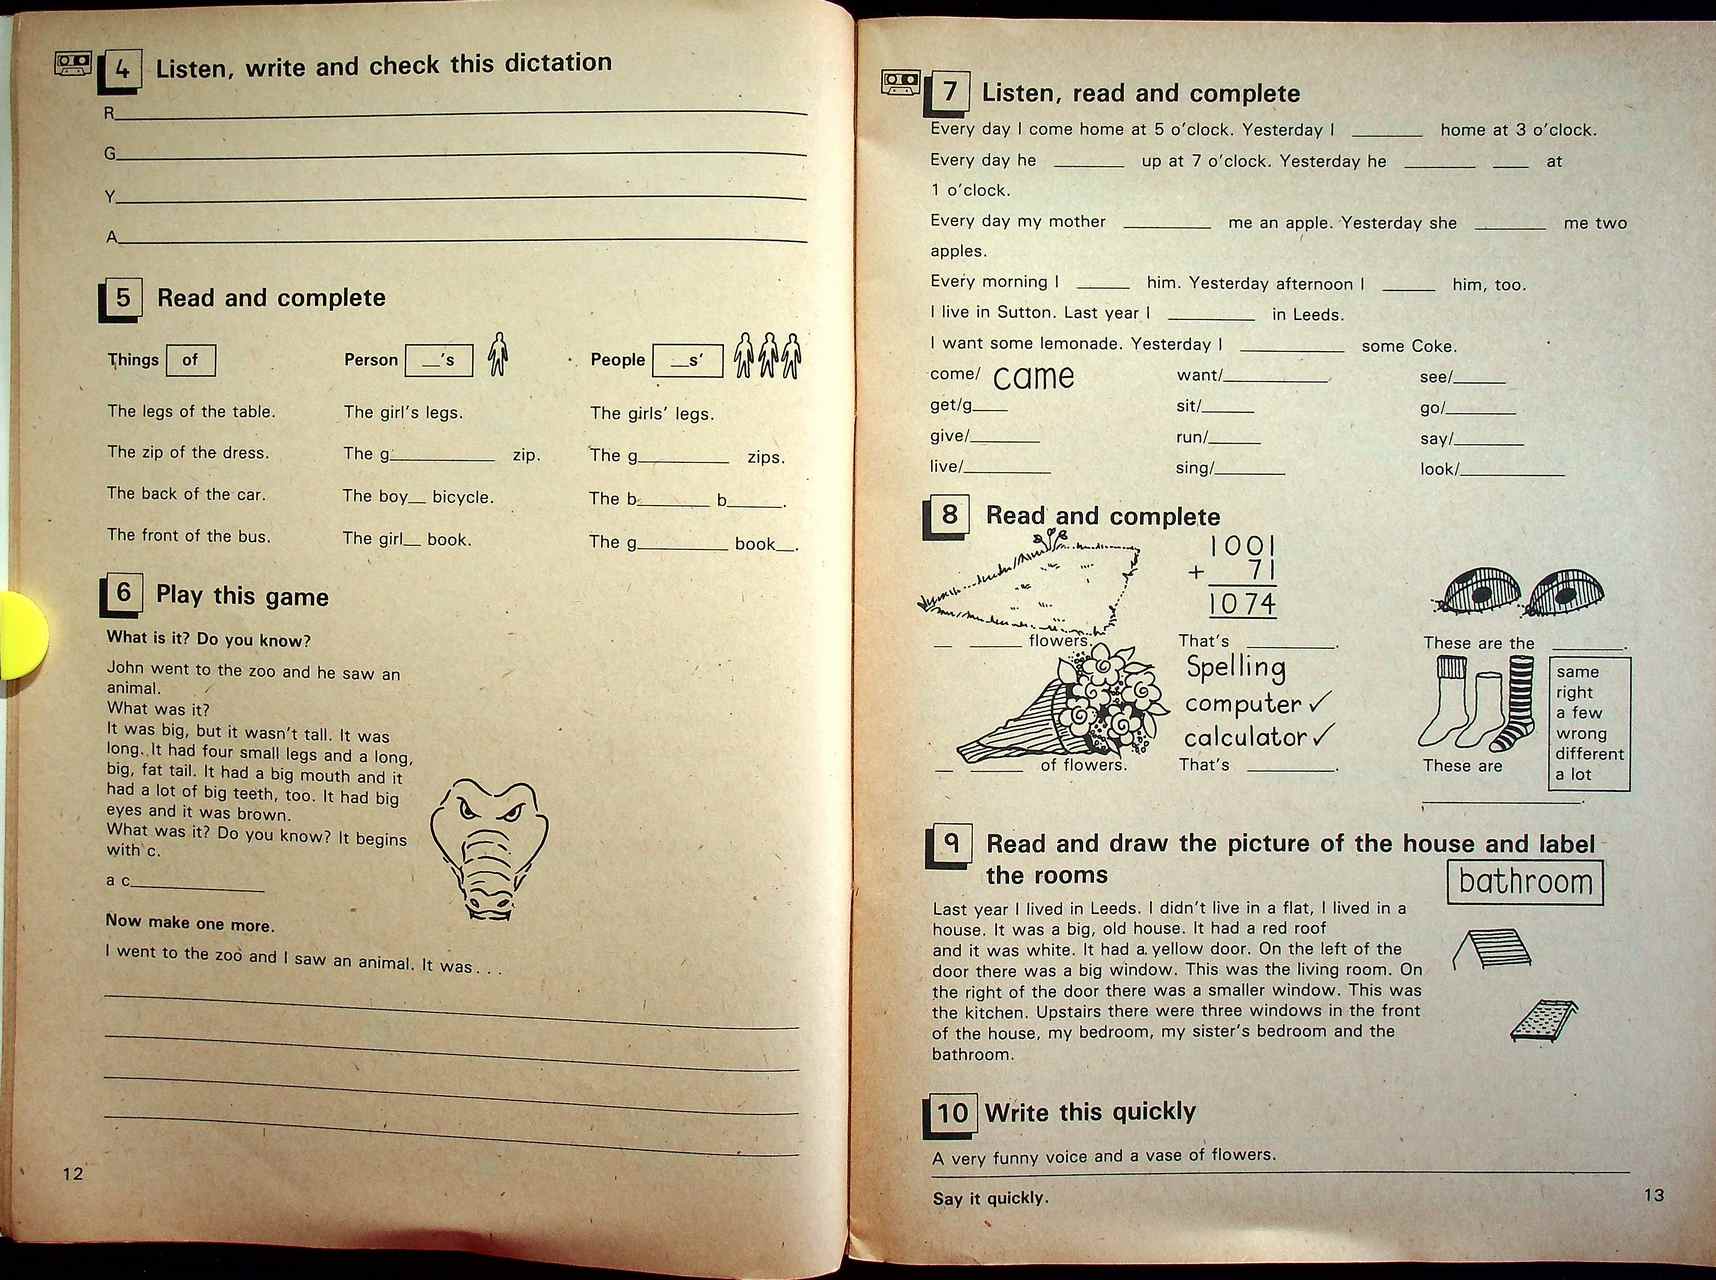 4 Listen, write and check this dictation
R
G
Y
A
5 Read and complete
Things of Person __'s People __s'
The legs of the table. The girl's legs. The girls' legs.
The zip of the dress. The g__________ zip. The g__________ zips.
The back of the car. The boy__ bicycle. The b________ b______.
The front of the bus. The girl__ book. The g__________ book__.
6 Play this game
What is it? Do you know?
John went to the zoo and he saw an
animal.
What was it?
It was big, but it wasn't tall. It was
long. It had four small legs and a long,
big, fat tail. It had a big mouth and it
had a lot of big teeth, too. It had big
eyes and it was brown.
What was it? Do you know? It begins
with c.
a c______________
Now make one more.
I went to the zoo and I saw an animal. It was . . .
12
7 Listen, read and complete
Every day I come home at 5 o'clock. Yesterday I ________ home at 3 o'clock.
Every day he ________ up at 7 o'clock. Yesterday he ________ ____ at
1 o'clock.
Every day my mother __________ me an apple. Yesterday she ________ me two
apples.
Every morning I ______ him. Yesterday afternoon I ______ him, too.
I live in Sutton. Last year I __________ in Leeds.
I want some lemonade. Yesterday I ____________ some Coke.
come/ came want/____________ see/______
get/g____ sit/______ go/________
give/________ run/______ say/________
live/__________ sing/________ look/____________
8 Read and complete
1001
+ 71
1074
__ ______ flowers. That's __________. These are the ________.
Spelling
computer ✓
calculator ✓
__ ______ of flowers. That's __________. These are
__________________.
same
right
a few
wrong
different
a lot
9 Read and draw the picture of the house and label
the rooms
bathroom
Last year I lived in Leeds. I didn't live in a flat, I lived in a
house. It was a big, old house. It had a red roof
and it was white. It had a yellow door. On the left of the
door there was a big window. This was the living room. On
the right of the door there was a smaller window. This was
the kitchen. Upstairs there were three windows in the front
of the house, my bedroom, my sister's bedroom and the
bathroom.
10 Write this quickly
A very funny voice and a vase of flowers.
Say it quickly.
13